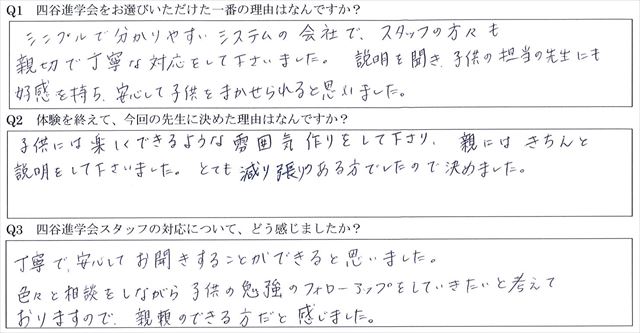 Q1　四谷進学会をお選びいただけた一番の理由はなんですか？
シンプルで分かりやすいシステムの会社で、スタッフの方々も
親切で丁寧な対応をして下さいました。 説明を聞き、子供の担当の先生にも
好感を持ち、安心して子供をまかせられると思いました。
Q2　体験を終えて、今回の先生に決めた理由はなんですか？
子供には楽しくできるような雰囲気作りをして下さり、親にはきちんと
説明をして下さいました。とても減り張りのある方でしたので決めました。
Q3　四谷進学会スタッフの対応について、どう感じましたか？
丁寧で、安心してお聞きすることができると思いました。
色々と相談をしながら子供の勉強のフォローアップをしていきたいと考えて
おりますので、親頼のできる方だと感じました。